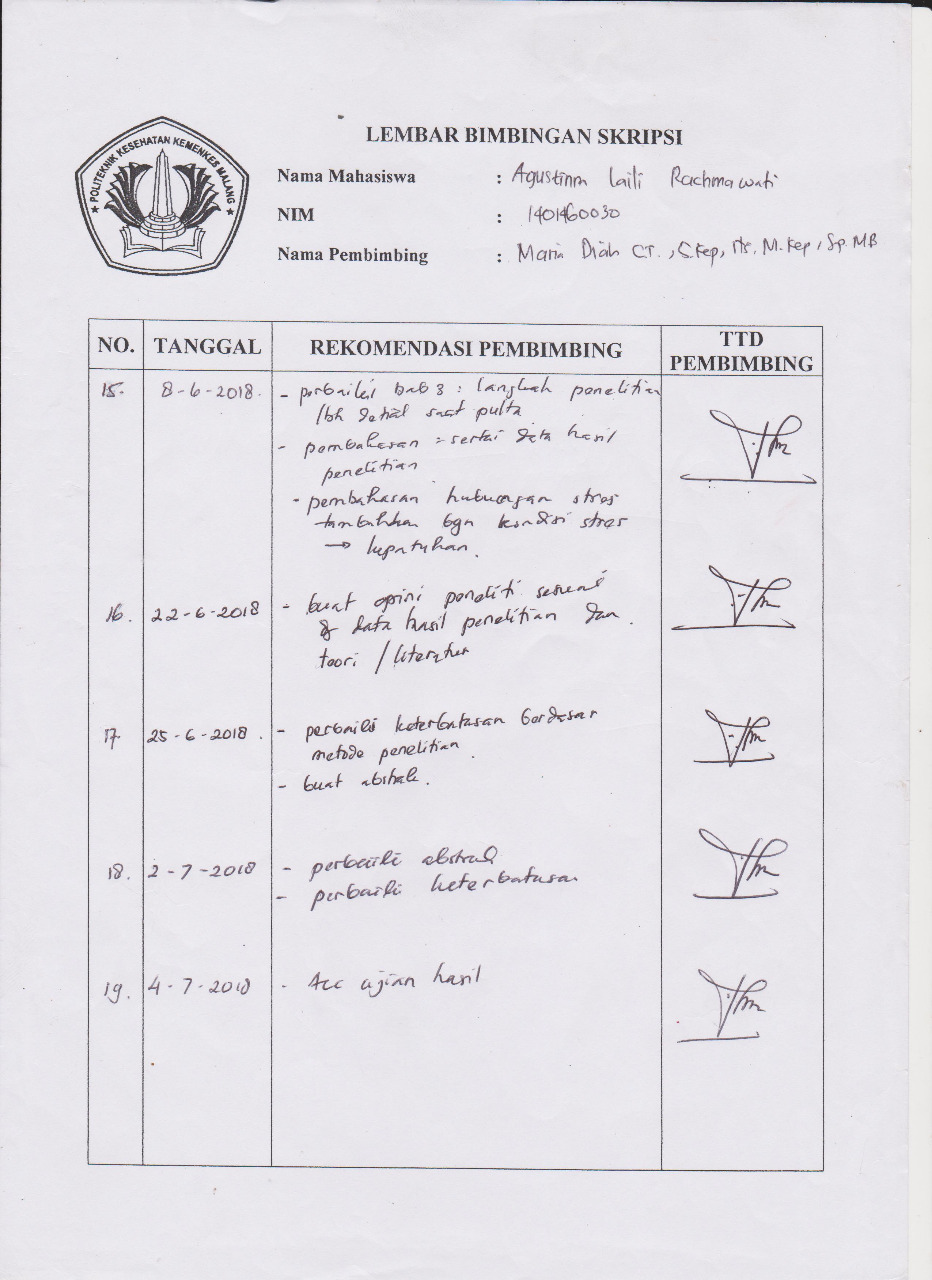 POLITEKNIK KESEHATAN KEMENKES MALANG
LEMBAR BIMBINGAN SKRIPSI
Nama Mahasiswa : Agustinna Laili Rachmawati
NIM : 1401460030
Nama Pembimbing : Maria Diah C.T., S.Kep, Ns, M.Kep, Sp.MB
NO. TANGGAL REKOMENDASI PEMBIMBING TTD PEMBIMBING
15. 8-6-2018. - perbaiki bab 3 : langkah penelitian
lbh detail saat pulta
- pembahasan = sertai data hasil
penelitian
- pembahasan hubungan stres
tambahkan bgn kondisi stres
→ kepatuhan.
16. 22-6-2018 - buat opini peneliti sesuai
data hasil penelitian dan
teori / literatur
17 25-6-2018. - perbaiki keterbatasan berdasar
metode penelitian.
- buat abstrak.
18. 2-7-2018 - perbaiki abstrak
- perbaiki keterbatasan
19. 4-7-2018 - Acc ujian hasil